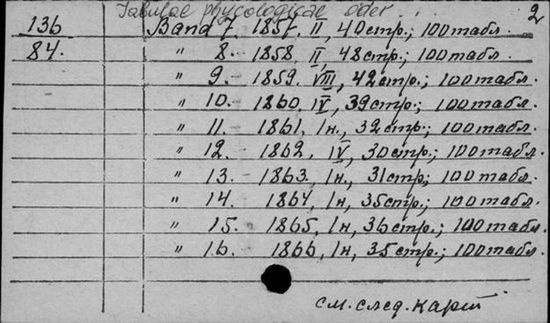 Tabulae phycologicae oder 2
136 Band 7. 1857, II, 40 стр.; 100 табл.
84. " 8. 1858, II, 48 стр.; 100 табл.
" 9. 1859. VIII, 42 стр.; 100 табл.
" 10. 1860, IV, 39 стр.; 100 табл.
" 11. 1861, 1н., 32 стр.; 100 табл.
" 12. 1862, IV, 30 стр.; 100 табл.
" 13. 1863, 1н., 31 стр; 100 табл.
" 14. 1864, 1н, 35 стр.; 100 табл.
" 15. 1865, 1н, 36 стр.; 100 табл.
" 16. 1866, 1н, 35 стр.; 100 табл.
см. след. карт